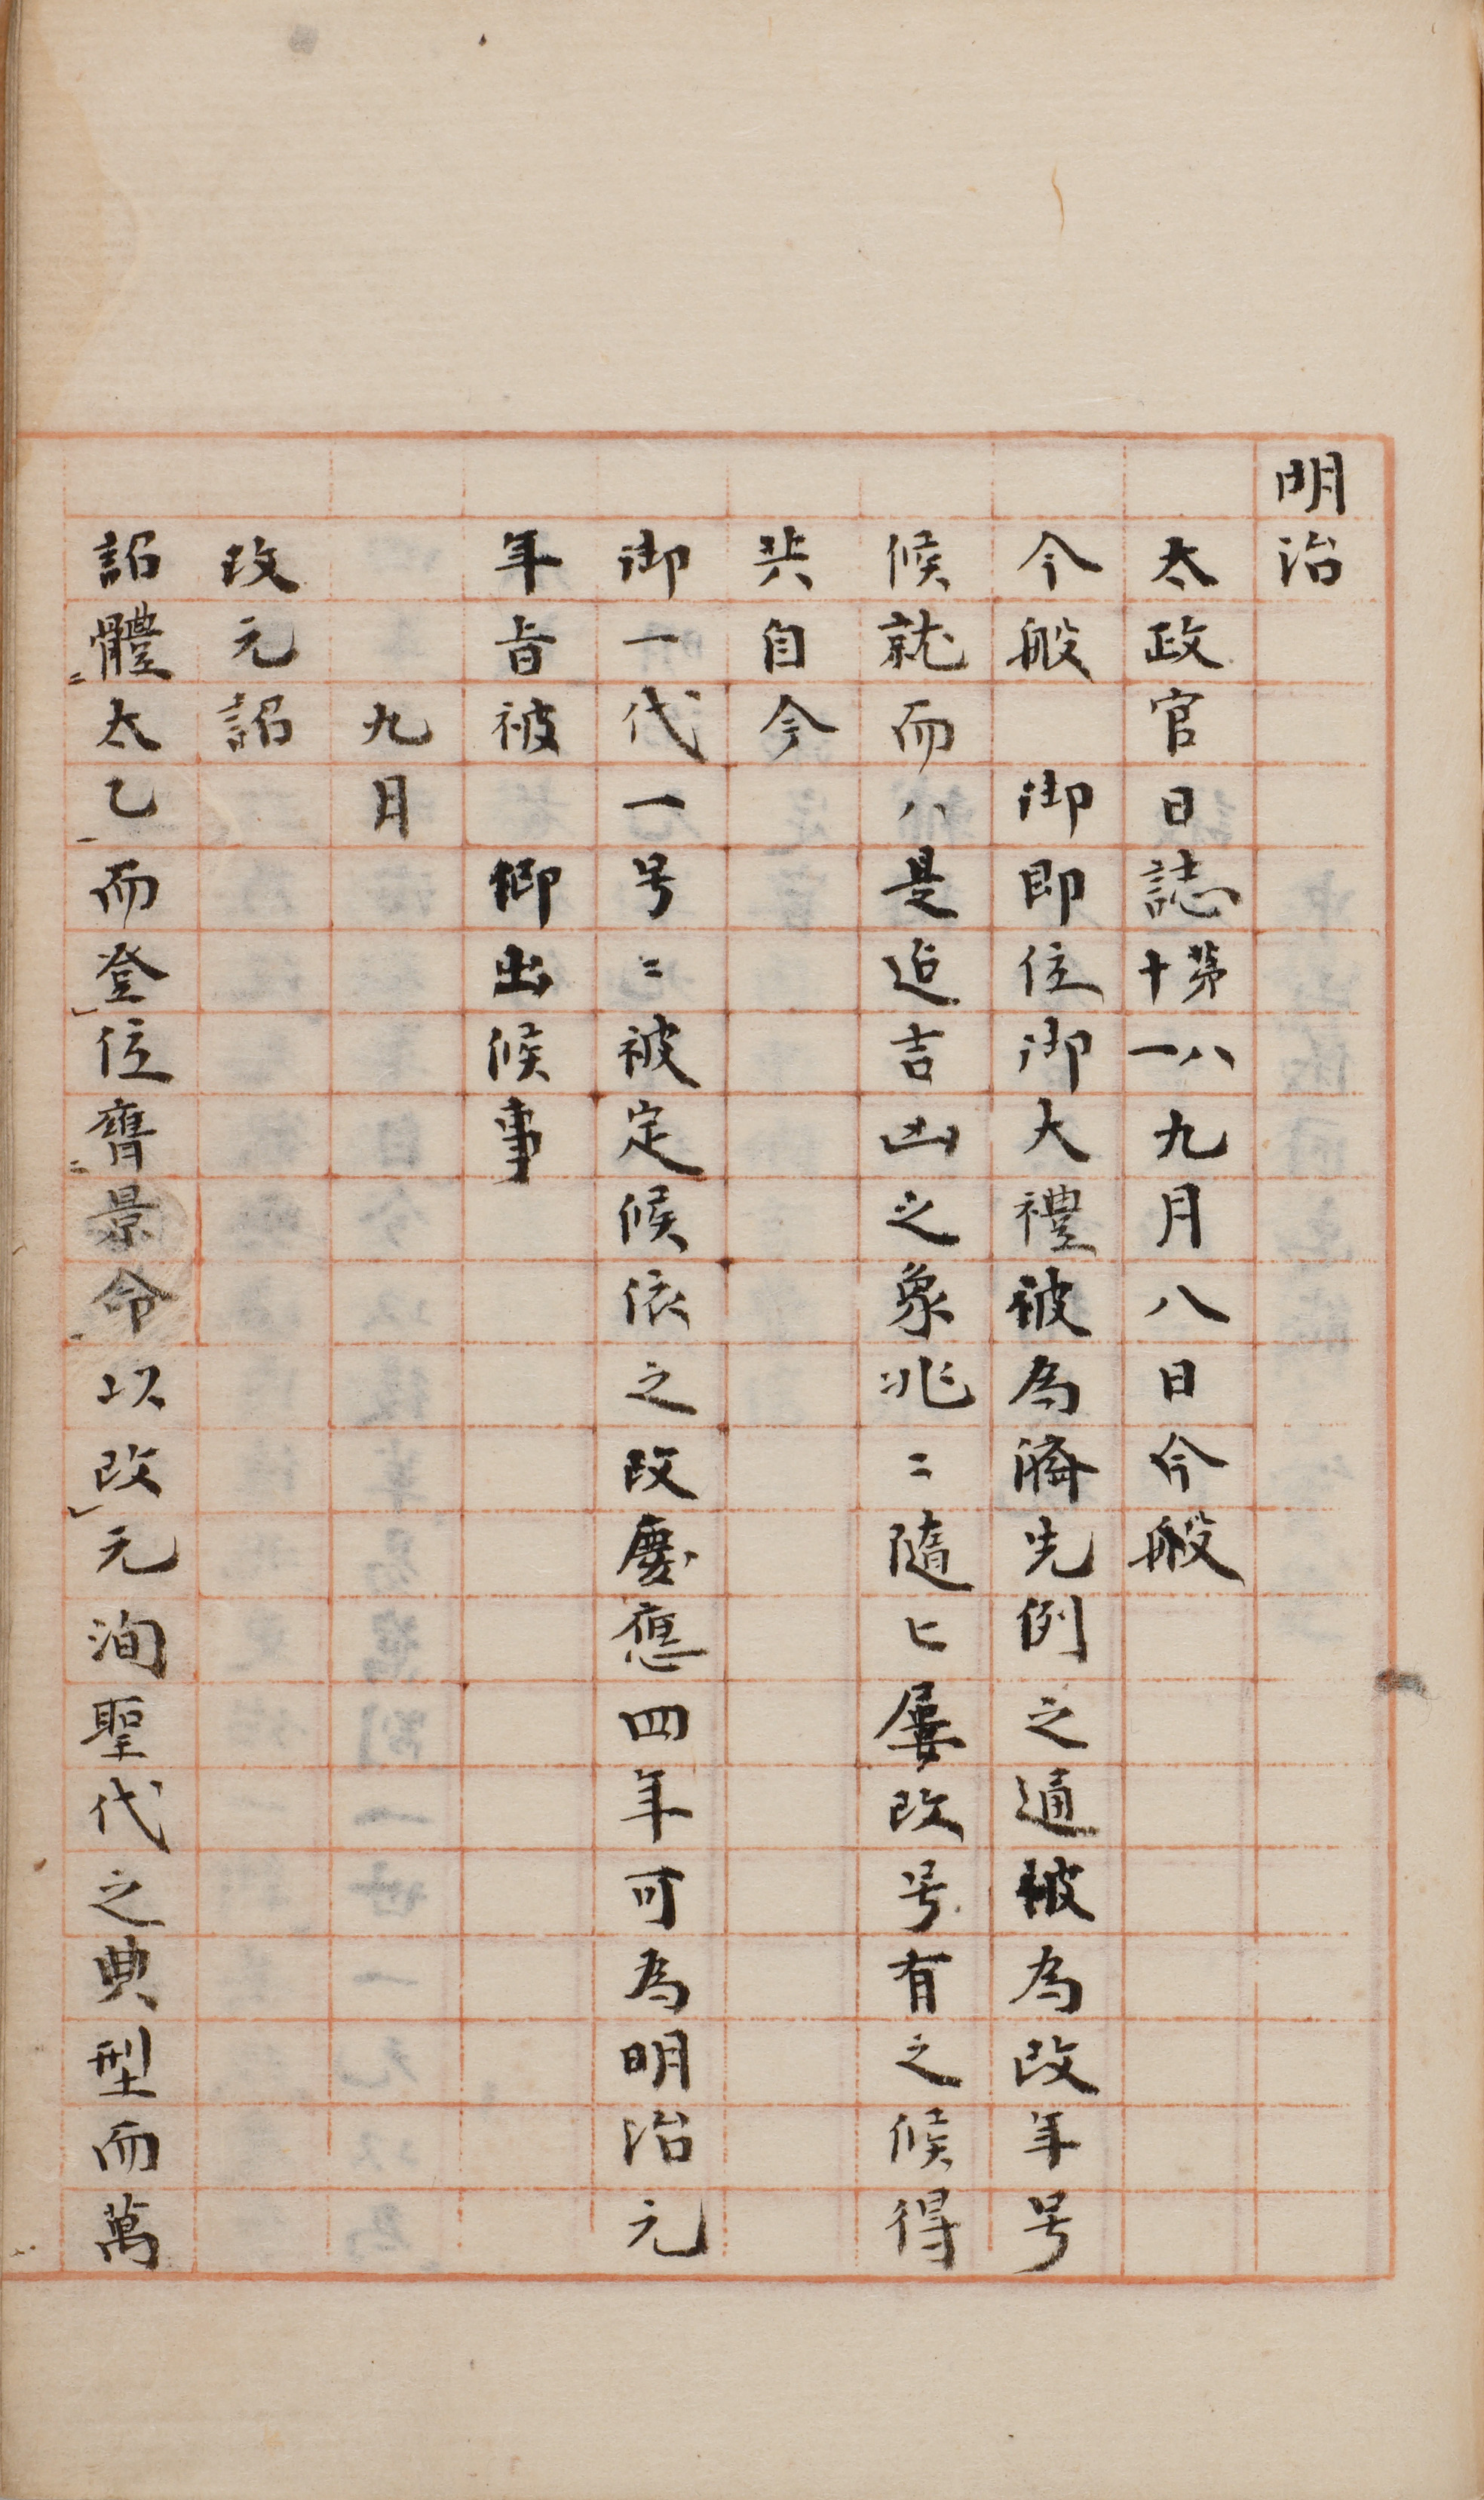 明治
太政官日誌第八十一九月八日今般
今般 御即位御大禮被為濟先例之通被為改年号
候就而ハ是迄吉凶之象兆ニ隨ヒ屢改号有之候得
共自今
御一代一号ニ被定候依之改慶應四年可為明治元
年旨被 仰出候事
九月
改元詔
詔體㆓太乙㆒而登㆑位膺㆓景命㆒以改㆑元洵聖代之典型而萬